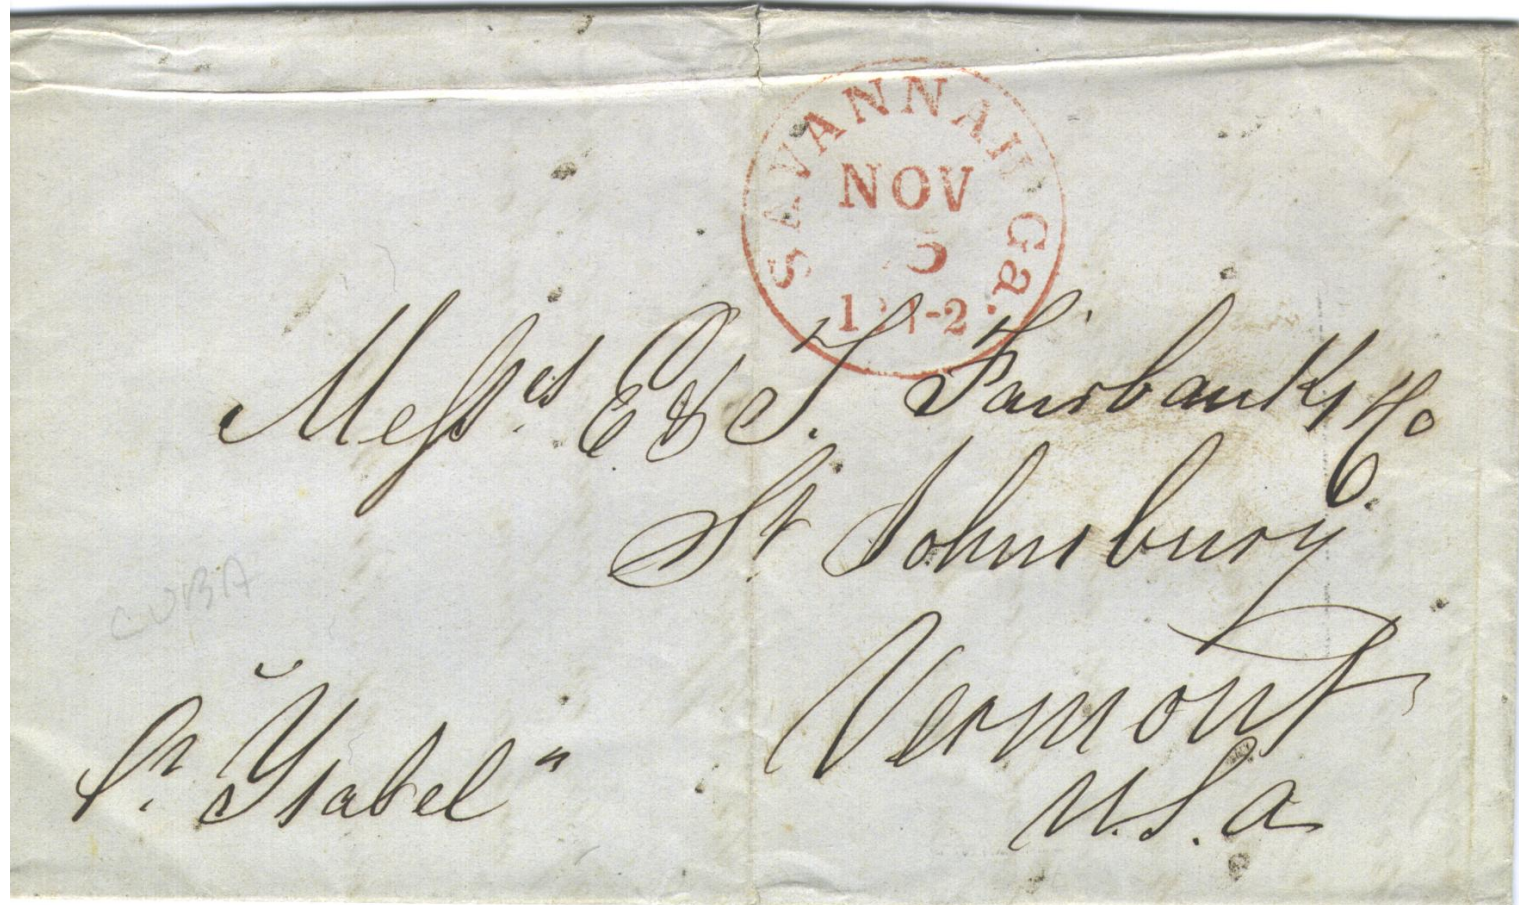 SAVANNAH Ga.
NOV
5
Messrs E & T. Fairbanks & Co
St Johnsbury
Vermont
U.S.A
CUBA
Pr. "Ysabel"